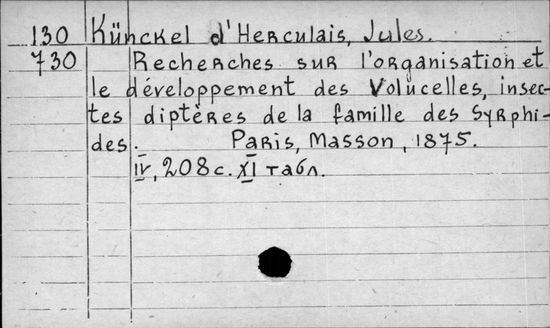 130 Künckel d'Herculais, Jules.
730 Recherches sur l'organisation et
le développement des Volucelles, insec-
tes diptères de la famille des Syrphi-
des. Paris, Masson, 1875.
IV, 208 с. XI табл.